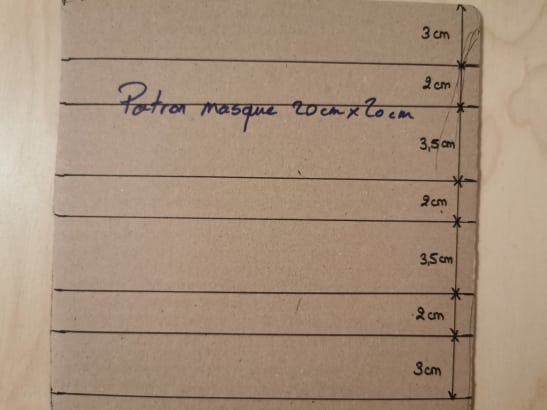 3 cm
2 cm
Patron masque 20 cm x 20 cm
3,5 cm
2 cm
3,5 cm
2 cm
3 cm